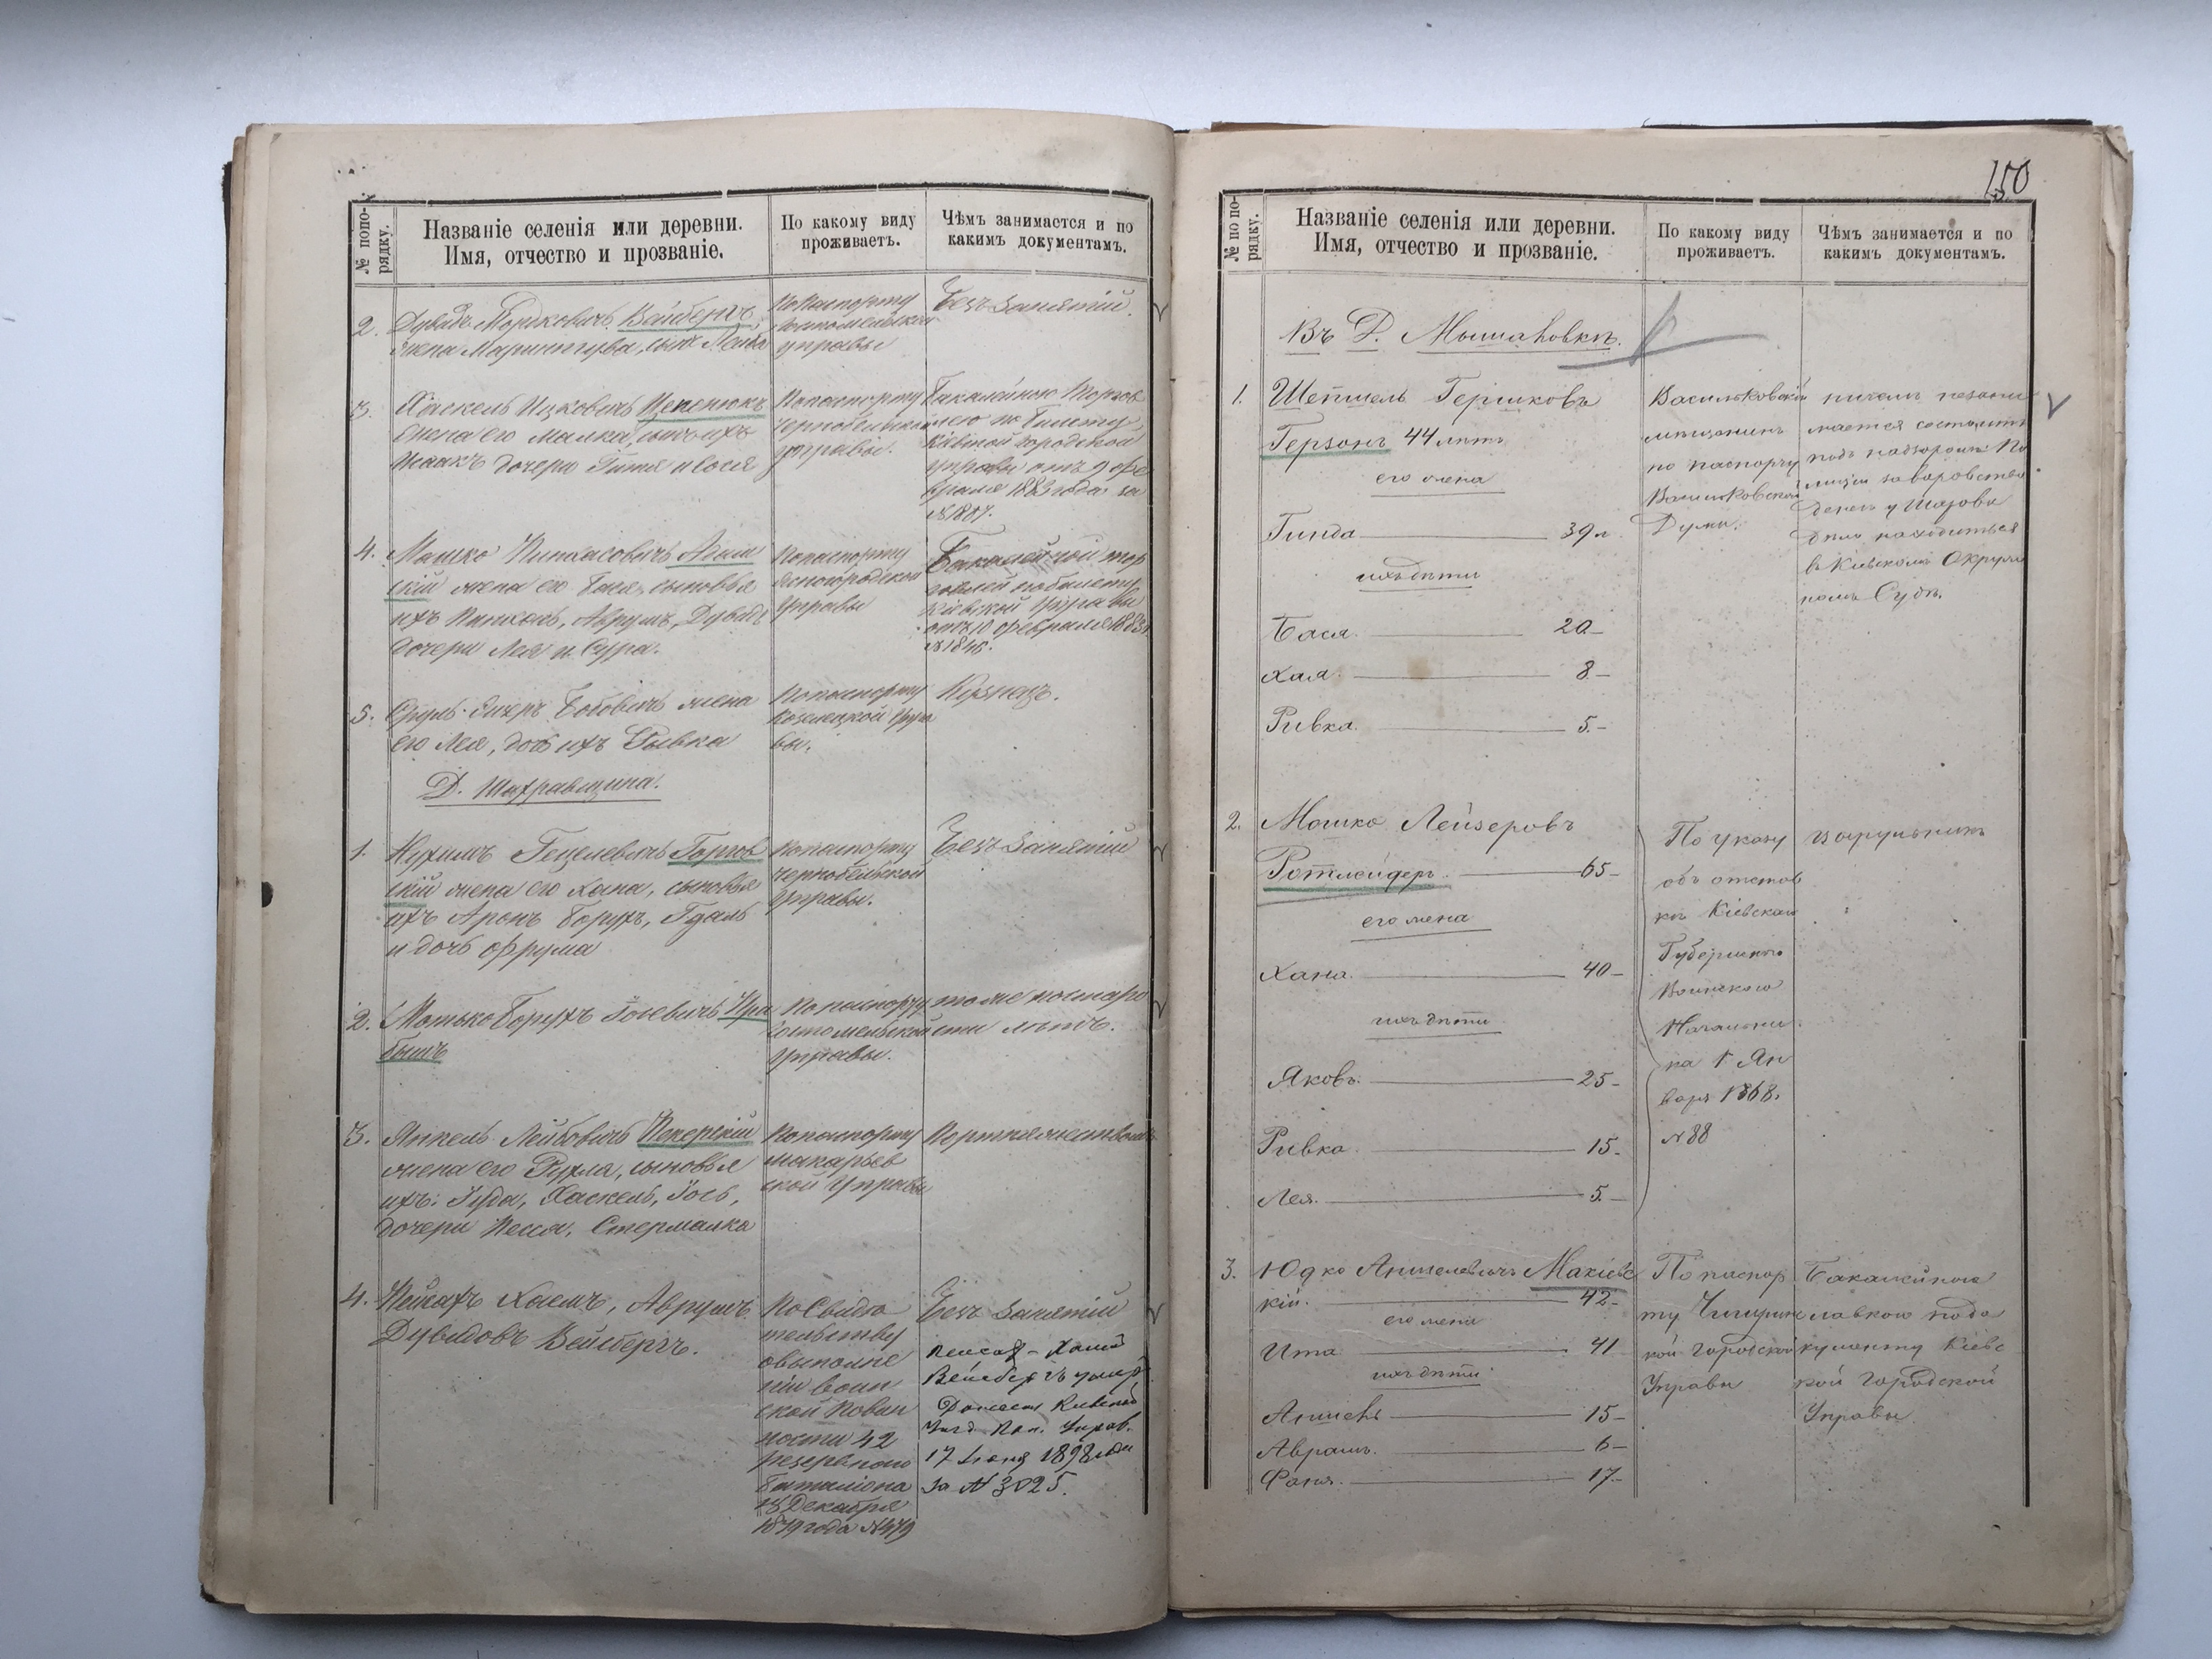 № попо-
рядку.
Названіе селенія или деревни.
Имя, отчество и прозваніе.
По какому виду
проживаетъ.
Чѣмъ занимается и по
какимъ документамъ.
2. Дувидъ Мордковичъ Вайсбергъ
жена сынъ
По паспорту
Гостомельской
управы
Безъ занятій.
3. Хаскель Ицковичъ
Жена его Малка, сынъ ихъ
Исаакъ дочери Гитя и Сося
По паспорту
Чернобыльской
управы.
Бакалейною Торгов
лею по билету
Кіевской городской
управы отъ 9 фе
враля 1883 года за
№ 1807.
4. Машко Пинкасовичъ
скій жена его Бася, сыновья
ихъ Пинкасъ, Аврумъ, Дувидъ
дочери Лея и Сура.
По паспорту
Ясногородской
Управы
Бакалейной тор
говлей по билету
Кіевской Управы
отъ 10 февраля 1883 г.
№ 1846.
5. Срулъ Бобовичъ жена
его Лея, дочь ихъ Рывка
По паспорту
Козелецкой Упра
вы.
Кузнецъ.
Д. Шахравщина.
1. Нухимъ Гецелевичъ Горнов
скій жена его Хана, сыновья
ихъ Аронъ Борухъ, Гдаль
и дочь Фрума
По паспорту
Чернобыльской
Управы.
Безъ занятій
2. Мотько Борухъ Іосевичъ
По паспорту
Гостомельской
Управы.
тоже по старо
сти лѣтъ.
3. Янкель Лейбовичъ Пекерскій
жена его Рухля, сыновья
ихъ: Іуда, Хаскель, Іось,
дочери Песся, Стермалка
По паспорту
Макарьев
ской Управы
Портняжествомъ
4. Пейсахъ Хаимъ, Аврумъ
Дувидовъ Вейсбергъ.
По Свидѣ
тельству
о выполне
ніи воин
ской повин
ности 42
резервного
баталіона
18 Декабря
1879 года № 479
Безъ занятій
Пейсах - Хаим
Вейсбергъ умер
Донесен Киевской
Уезд. Пол. Управ.
17 Іюня 1898 года
за № 3025.
150
№ по по-
рядку.
Названіе селенія или деревни.
Имя, отчество и прозваніе.
По какому виду
проживаетъ.
Чѣмъ занимается и по
какимъ документамъ.
Въ Д. Мышаковкѣ.
1. Шепшель Гершковъ
Герзонъ 44 лѣтъ
его жена
Гинда 39 л
ихъ дѣти
Бася. 20–
Хая. 8–
Ривка. 5.–
Васильковскій
мѣщанинъ
по паспорту
Васильковской
Думы.
ничемъ незани
мается состоитъ
подъ надзоромъ По
лиціи за воровство
денегъ у Шарова
дѣло находиться
въ Кіевскомъ Окруж
номъ Судѣ.
2. Мошко Лейзеровъ
Ротлейдеръ. 65–
его жена
Хана. 40–
ихъ дѣти
Яковъ. 25–
Ривка 15–
Лея. 5.–
По указу
объ отстав
кѣ Кіевскаго
Губернскаго
Воинского
Начальни
ка 1 Ян
варя 1868.
№ 88
цырульникъ
3. Юдко Аншелевичъ Макіевс
кій. 42–
его жена
Ита 41
ихъ дѣти
Аншель 15–
Аврамъ. 6–
Фаня. 17–
По паспор
ту Чигирин
кой городской
Управы
Бакалейною
лавкою по до
кументу Кіевс
кой Городской
Управы.